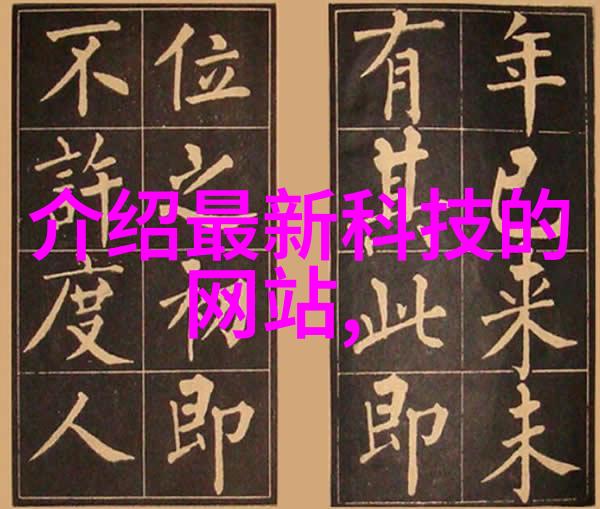 介绍最新科技的
网站,
年已来未
有其此即
位之初即
不許度人